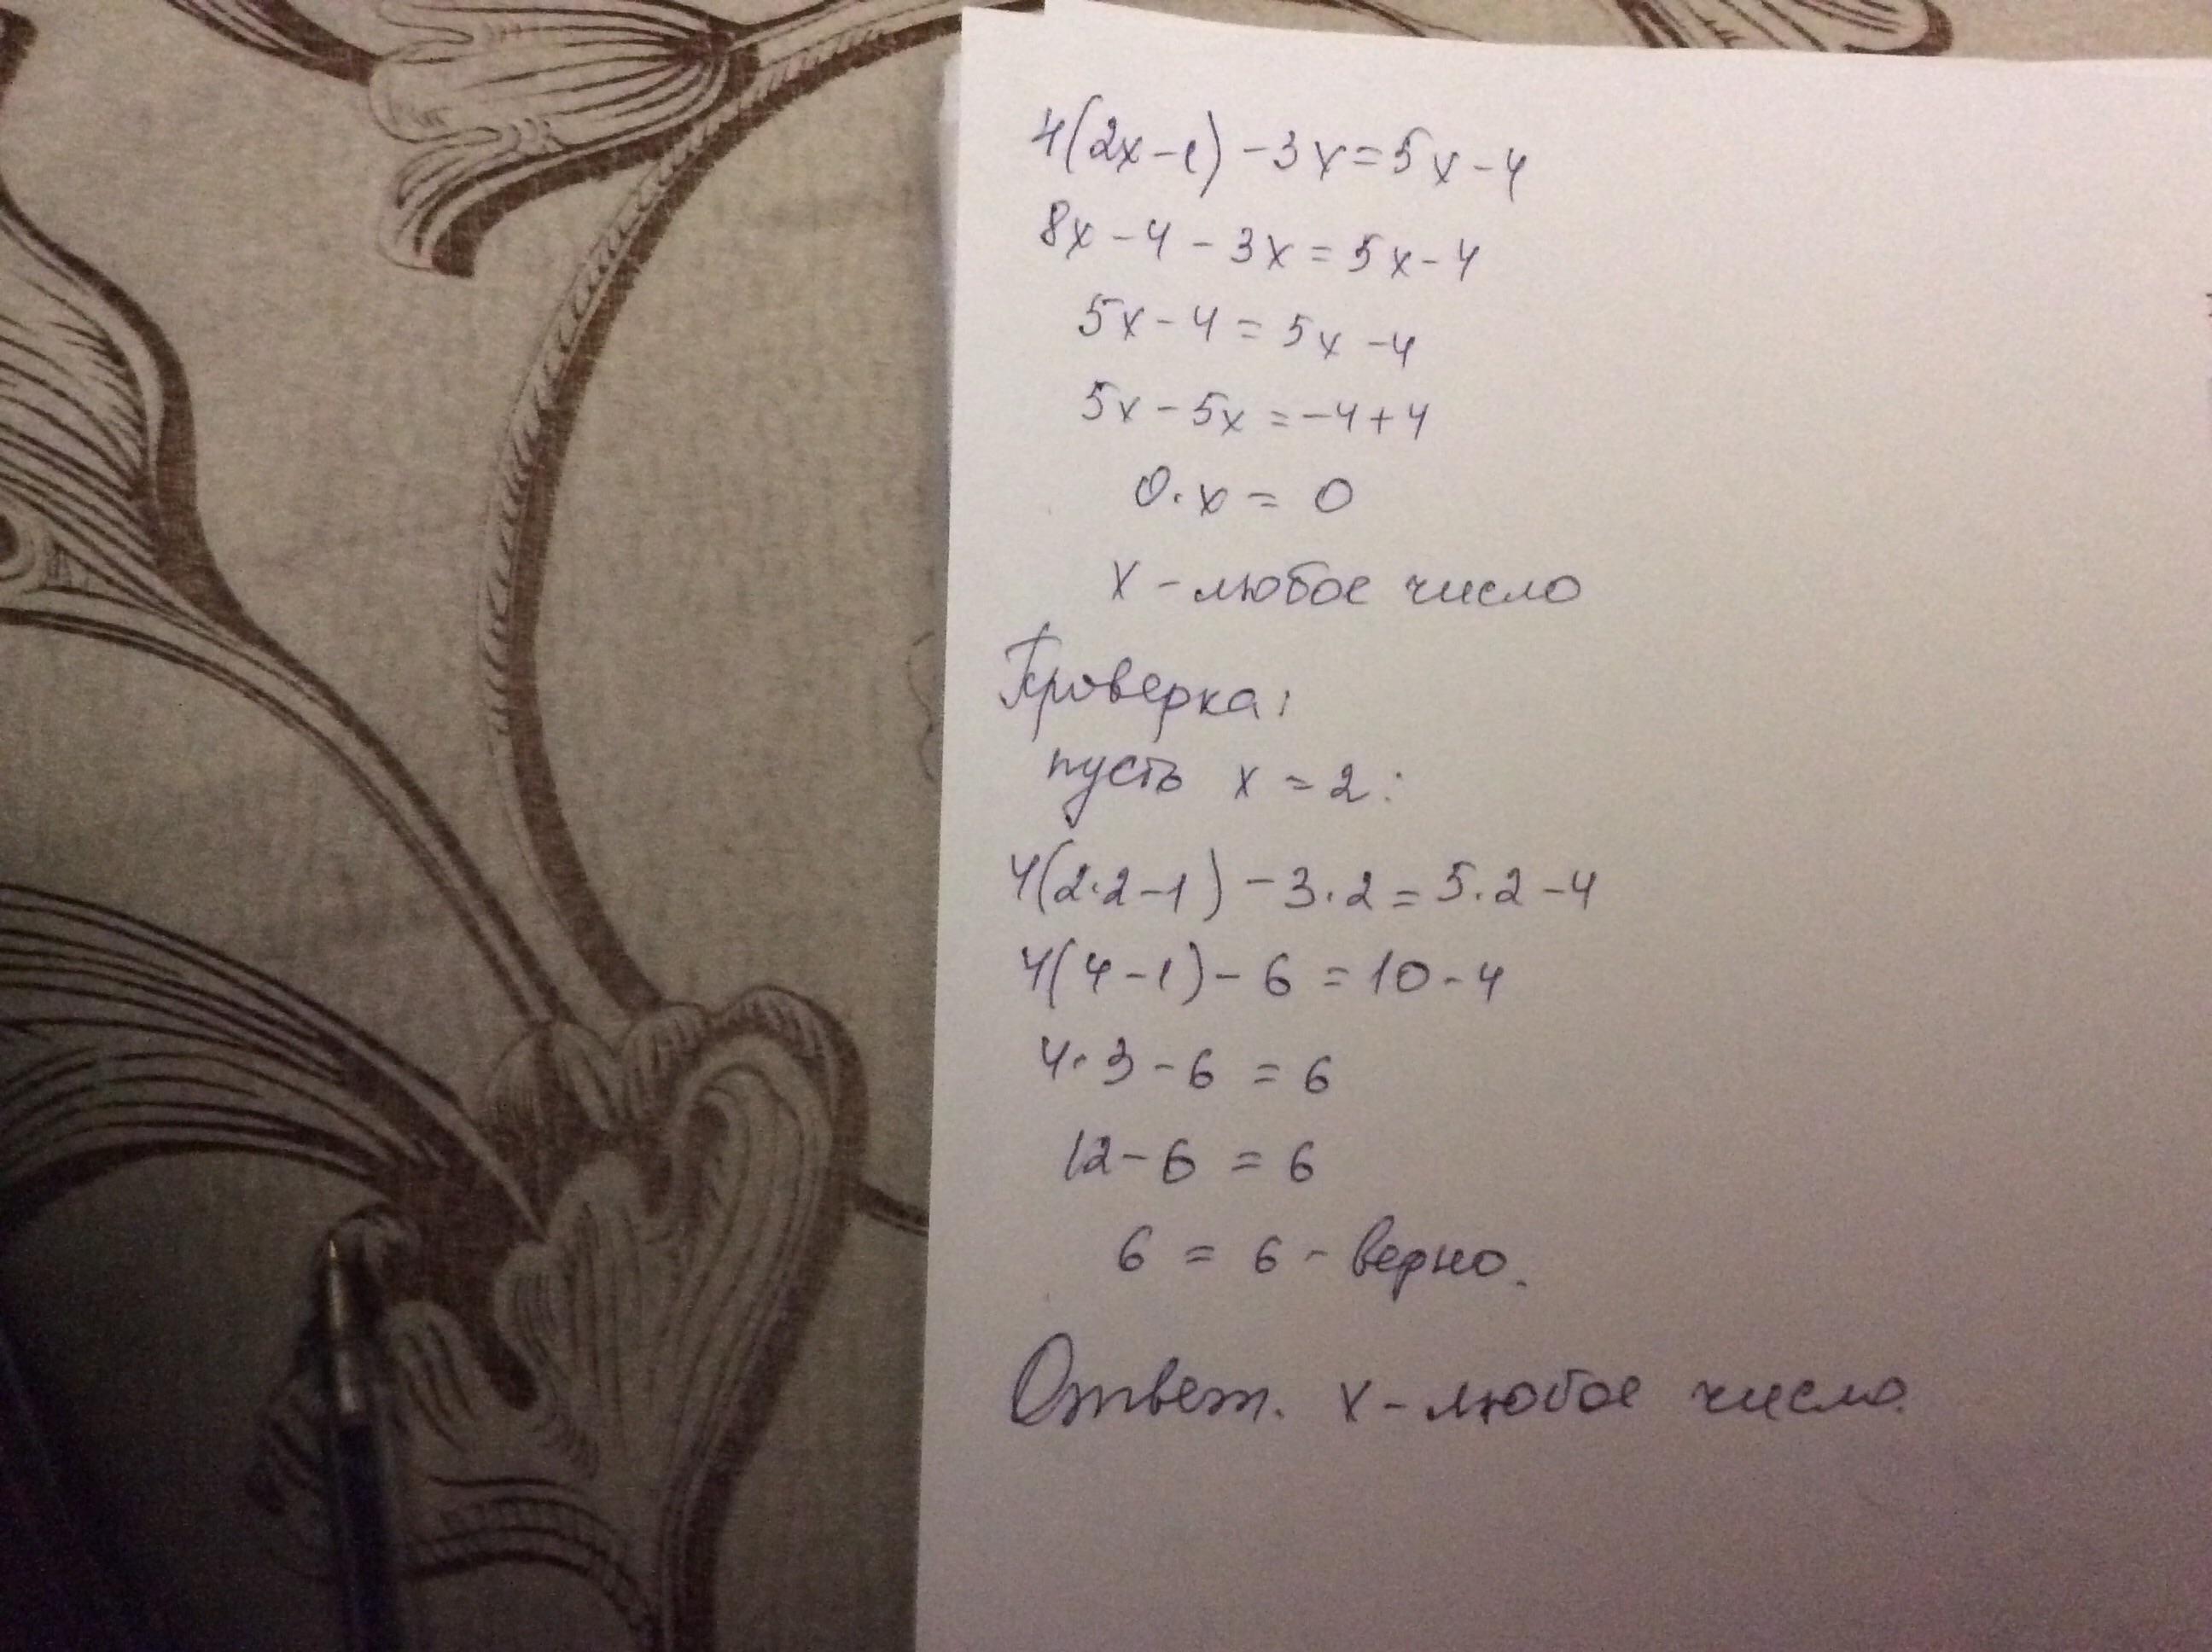 4(2x-1)-3x=5x-4
8x-4-3x=5x-4
5x-4=5x-4
5x-5x=-4+4
0·x=0
x-любое число
Проверка:
пусть x=2:
4(2·2-1)-3·2=5·2-4
4(4-1)-6=10-4
4·3-6=6
12-6=6
6=6-верно.
Ответ. x-любое число.